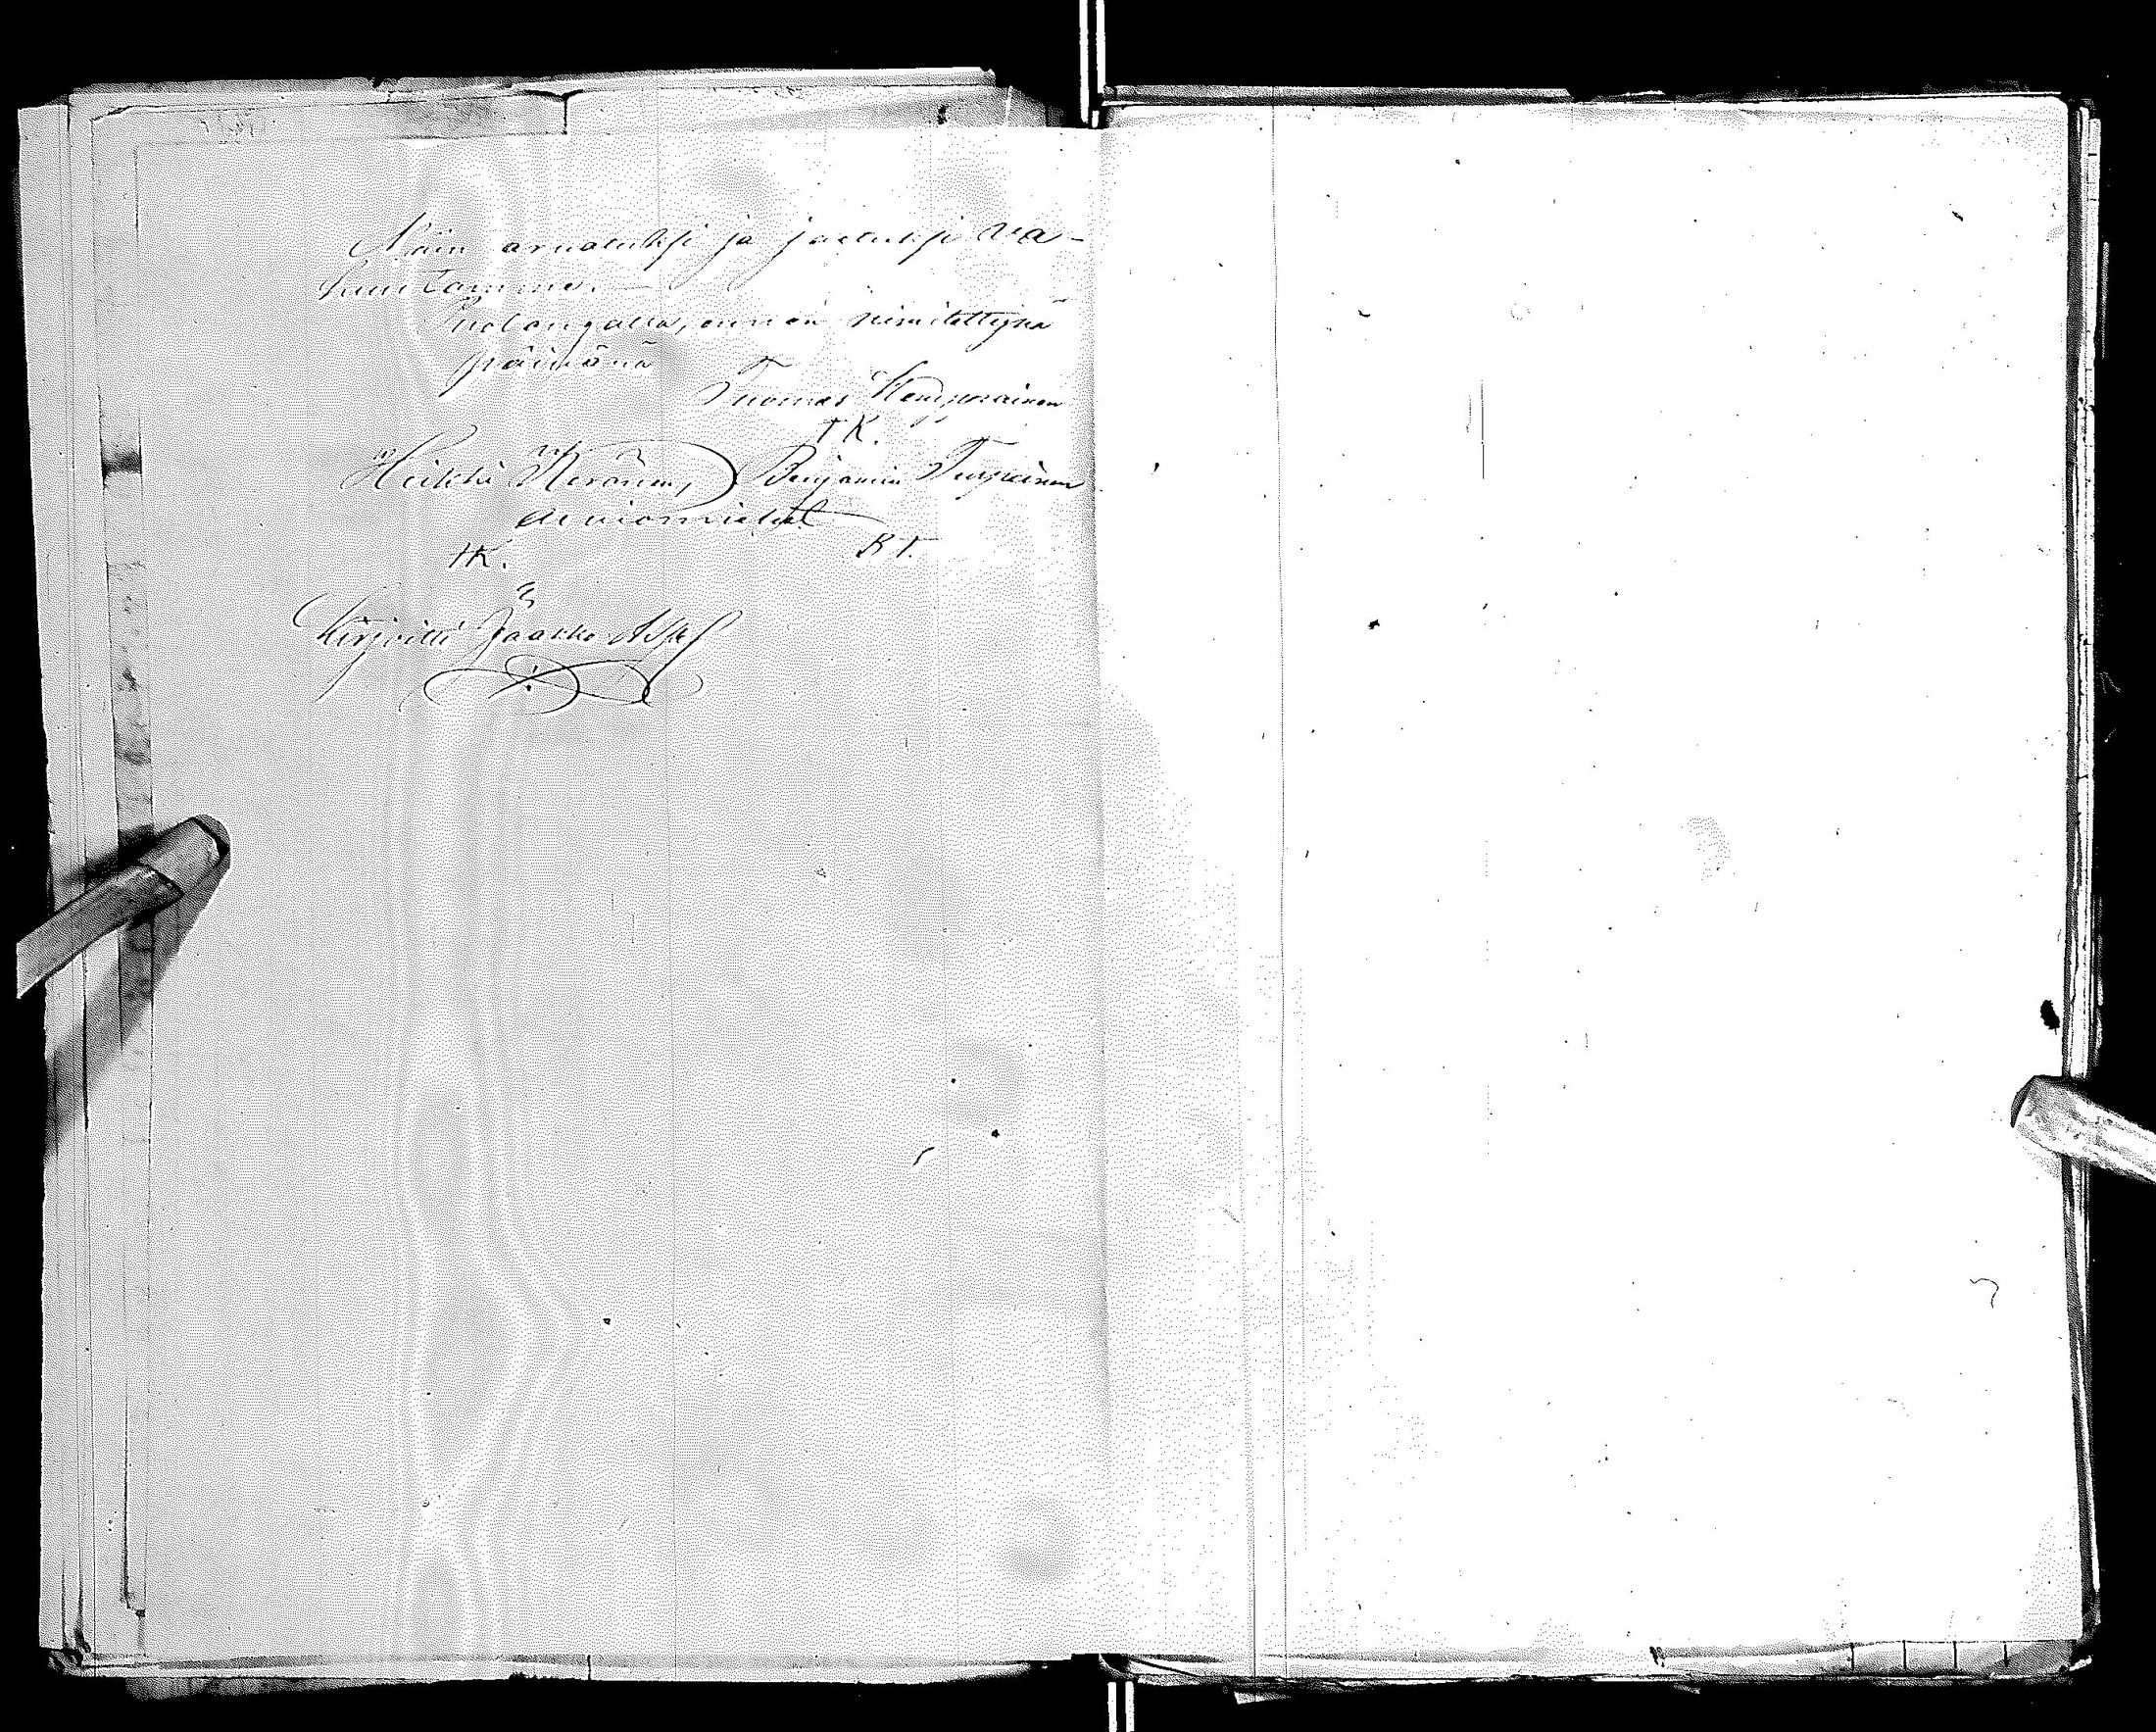 Näin arvatuksi ja jaetuksi va-
kuutamme.
Puolangalla, ennen nimitettynä
päivänä
Tuomas Kemppainen
TK.
Heikki Keränen, Benjamin Turpeinen
arviomiehet
HK. BT.
Kirjoitti Jaakko